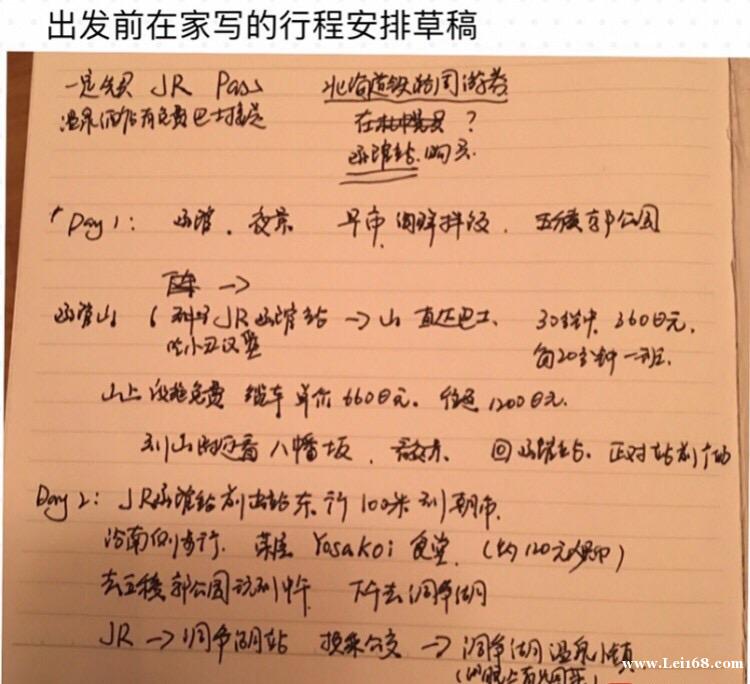 出发前在家写的行程安排草稿
一定先买 JR Pass 北海道铁路周游券
温泉酒店有免费巴士接送 在札幌买?
函馆站购买.
Day 1: 函馆. 夜景 早市 海鲜拌饭. 五稜郭公园
→
函馆山 JR函馆站 → 山 直达巴士. 30分钟. 360日元.
吃小丑汉堡 每20分钟一班.
山上 免费 缆车 单价660日元. 往返1200日元.
到山脚还看八幡坂. 回函馆站. 正对站前广场
Day 2: JR函馆站前出站东行100米到朝市.
沿南侧步行. 菜屋 Yosakoi 食堂. (约120元人民币)
去五稜郭公园玩到中午 下午去洞爷湖
JR → 洞爷湖站 换乘公交 → 洞爷湖温泉小镇
www.Lei168.com